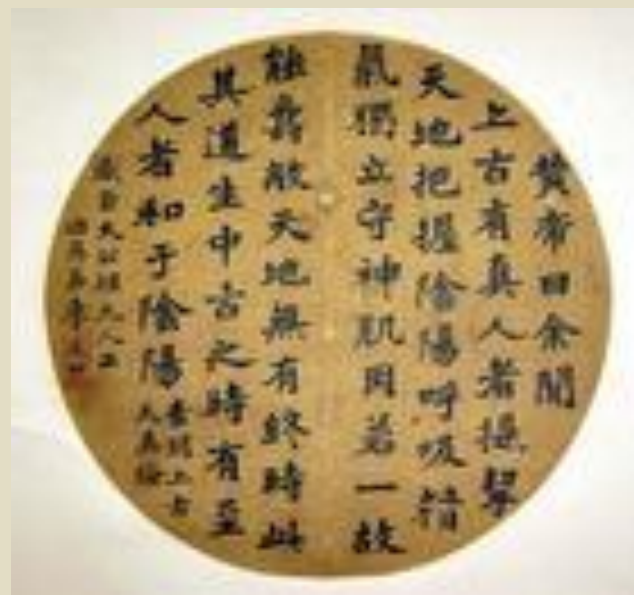 黄帝曰余聞
上古有真人者提挈
天地把握陰陽呼吸精
氣獨立守神肌肉若一故
能壽敝天地無有終時此
其道生中古之時有至
人者和于陰陽
素問上古
天真論